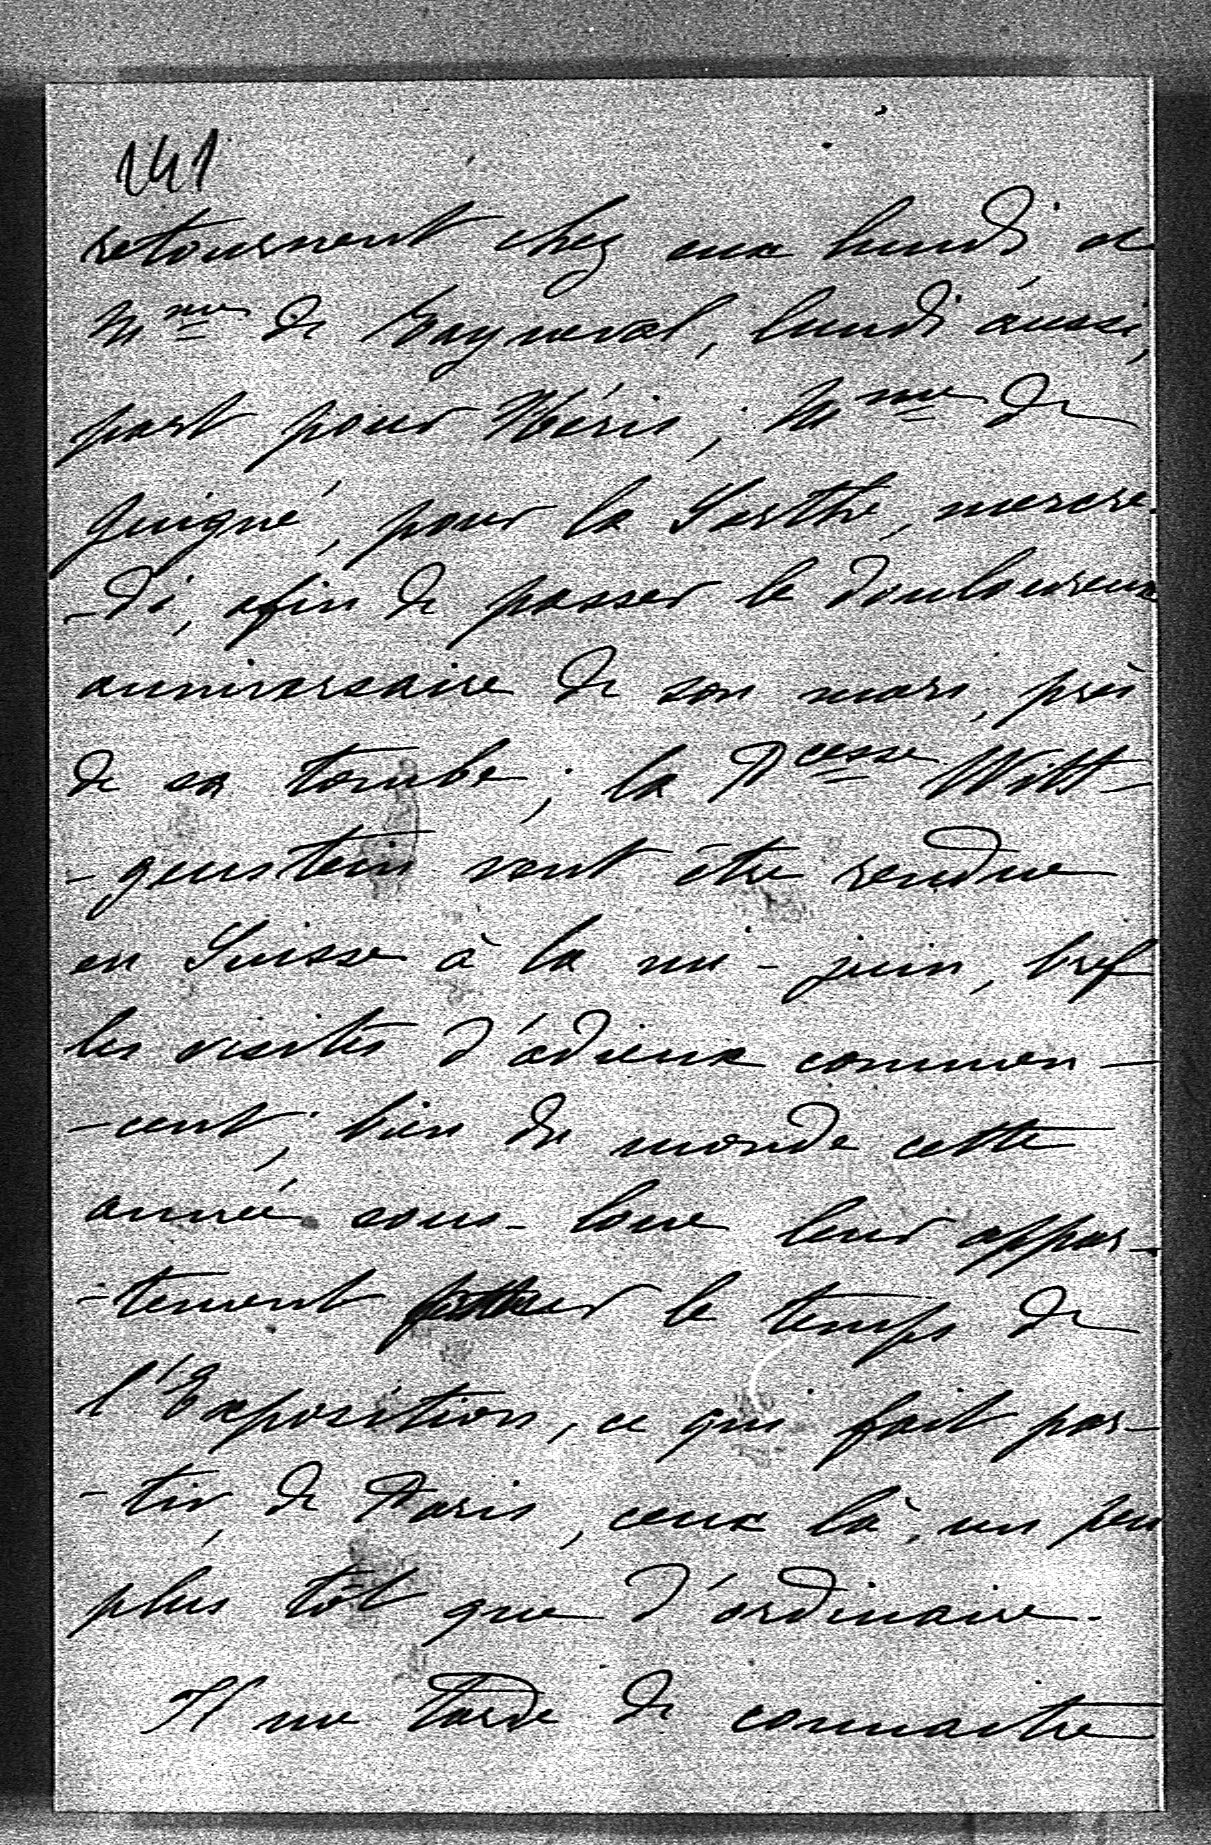 141
retournent chez eux lundi et
Mme de Rayneval, lundi aussi,
part pour Néris ; Mme de
Guigné, pour la Sarthe, mercre-
-di, afin de passer le douloureux
anniversaire de son mari, près
de sa tombe ; la Pcesse Witt-
-genstein veut être rendue
en Suisse à la mi-juin, bref
les visites d'adieux commen-
-cent ; bien du monde cette
année sous-loue leur appar-
-tement pour le temps de
l'Exposition, ce qui fait par-
-tir, de Paris, ceux là, un peu
plus tôt que d'ordinaire.
Il me tarde de connaitre